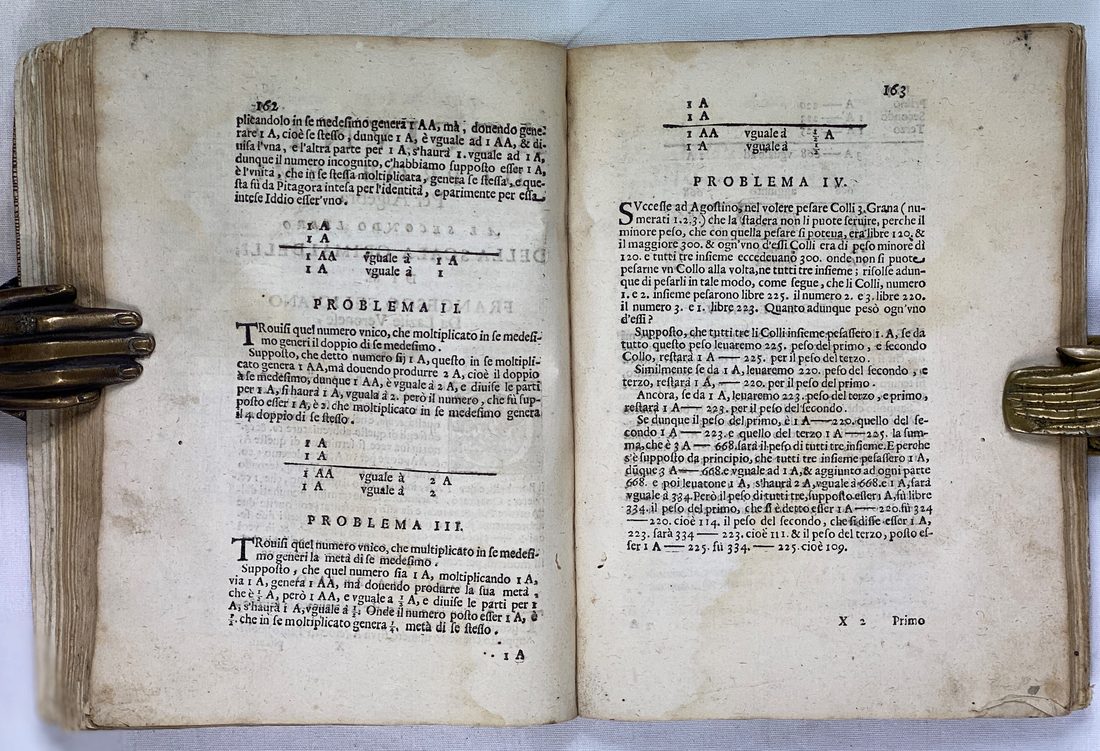 162
plicandolo in se medesimo genera 1 AA, mà, douendo gene-
rare 1 A, cioè se stesso, dunque 1 A, è vguale ad 1 AA, & di-
uisa l'vna, e l'altra parte per 1 A, s'haurà 1. vguale ad 1 A,
dunque il numero incognito, c'habbiamo supposto esser 1 A,
è l'vnità, che in se stessa moltiplicata, genera se stessa, e que-
sta fù da Pitagora intesa per l'identità, e parimente per essa
intese Iddio esser'vno.
1 A
1 A
1 AA vguale à 1 A
1 A vguale à 1
PROBLEMA II.
TRouisi quel numero vnico, che moltiplicato in se medesi-
mo generi il doppio di se medesimo.
Supposto, che detto numero sij 1 A, questo in se moltipli-
cato genera 1 AA, mà douendo produrre 2 A, cioè il doppio
à se medesimo, dunque 1 AA, è vguale à 2 A, e diuise le parti
per 1 A, si haurà 1 A, vguala à 2. però il numero, che fù sup-
posto esser 1 A, è 2. che moltiplicato in se medesimo genera
il 4. doppio di se stesso.
1 A
1 A
1 AA vguale à 2 A
1 A vguale à 2
PROBLEMA III.
TRouisi quel numero vnico, che multiplicato in se medesi-
mo generi la metà di se medesimo.
Supposto, che quel numero sia 1 A, moltiplicando 1 A,
via 1 A, genera 1 AA, mà douendo produrre la sua metà,
che è ½ A, però 1 AA, e vguale a ½ A, e diuise le parti per 1
A, s'haurà 1 A, vguale à ½. Onde il numero posto esser 1 A, è
½. che in se moltiplicato genera ¼. metà di se stesso.
1 A
163
1 A
1 A
1 AA vguale à ½ A
1 A vguale à ½
PROBLEMA IV.
SVccesse ad Agostino, nel volere pesare Colli 3. Grana (nu-
merati 1. 2. 3.) che la stadera non li puote seruire, perche il
minore peso, che con quella pesare si poteua, era libre 120. &
il maggiore 300. & ogn'vno d'essi Colli era di peso minore di
120. e tutti tre insieme eccedeuano 300. onde non si puote
pesarne vn Collo alla volta, ne tutti tre insieme; risolse adun-
que di pesarli in tale modo, come segue, che li Colli, numero
1. e 2. insieme pesarono libre 225. il numero 2. e 3. libre 220.
il numero 3. e 1. libre 223. Quanto adunque pesò ogn'vno
d'essi?
Supposto, che tutti tre li Colli insieme pesassero 1. A, se da
tutto questo peso leuaremo 225. peso del primo, e secondo
Collo, restarà 1 A — 225. per il peso del terzo.
Similmente se da 1 A, leuaremo 220. peso del secondo, e
terzo, restarà 1 A, — 220. per il peso del primo.
Ancora, se da 1 A, leuaremo 223. peso del terzo, e primo,
restarà 1 A — 223. per il peso del secondo.
Se dunque il peso del primo, è 1 A — 220. quello del se-
condo 1 A — 223. e quello del terzo 1 A — 225. la sum-
ma, che è 3 A — 668. sarà il peso di tutti tre insieme. E perche
s'è supposto da principio, che tutti tre insieme pesassero 1 A,
dũque 3 A — 668. e vguale ad 1 A, & aggiunto ad ogni parte
668. e poi leuatone 1 A, s'haurà 2 A, vguale à 668. e 1 A, sarà
vguale à 334. Però il peso di tutti tre, supposto esser 1 A, fù libre
334. il peso del primo, che si è detto esser 1 A — 220. fù 324
— 220. cioè 114. il peso del secondo, che si disse esser 1 A,
223. sarà 334 — 223. cioè 111. & il peso del terzo, posto es-
ser 1 A — 225. fù 334. — 225. cioè 109.
X 2 Primo